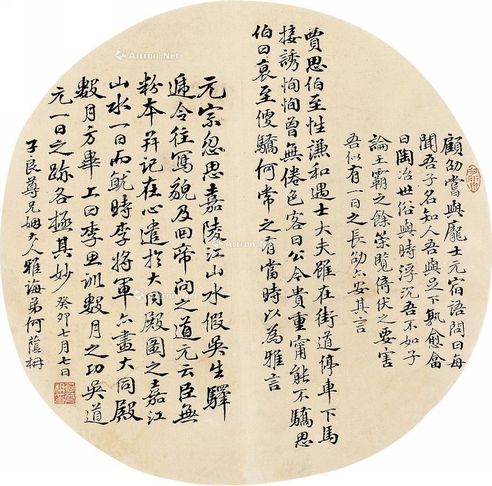 顧劭嘗與龐士元宿語問曰每
聞吾子名知人吾與足下孰愈畣
曰陶冶世俗與時浮沉吾不如子
論王霸之餘策覽倚伏之要害
吾似有一日之長劭亦安其言
賈思伯至性謙和遇士大夫雖在街道停車下馬
接誘恂恂曾無倦色客曰公今貴重甯能不驕思
伯曰衰至便驕何常之有當時以為雅言
元宗忽思嘉陵江山水假吳生驛
遞令往寫貌及回帝問之道元云臣無
粉本并記在心遣於大同殿圖之嘉江
山水一日而就時李將軍亦畫大同殿
數月方畢上曰李思訓數月之功吳道
元一日之跡各極其妙 癸卯七月七日
子良尊兄姻大人雅海弟何蔭柟
Artron.Net